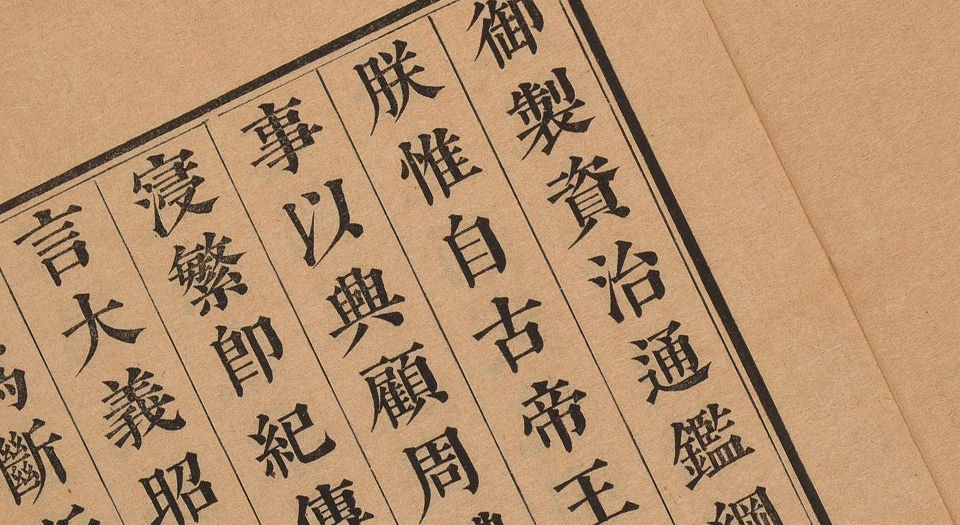 御製資治通鑑綱
朕惟自古帝王
事以興顧周
寖繁卽紀傳
言大義昭
斷